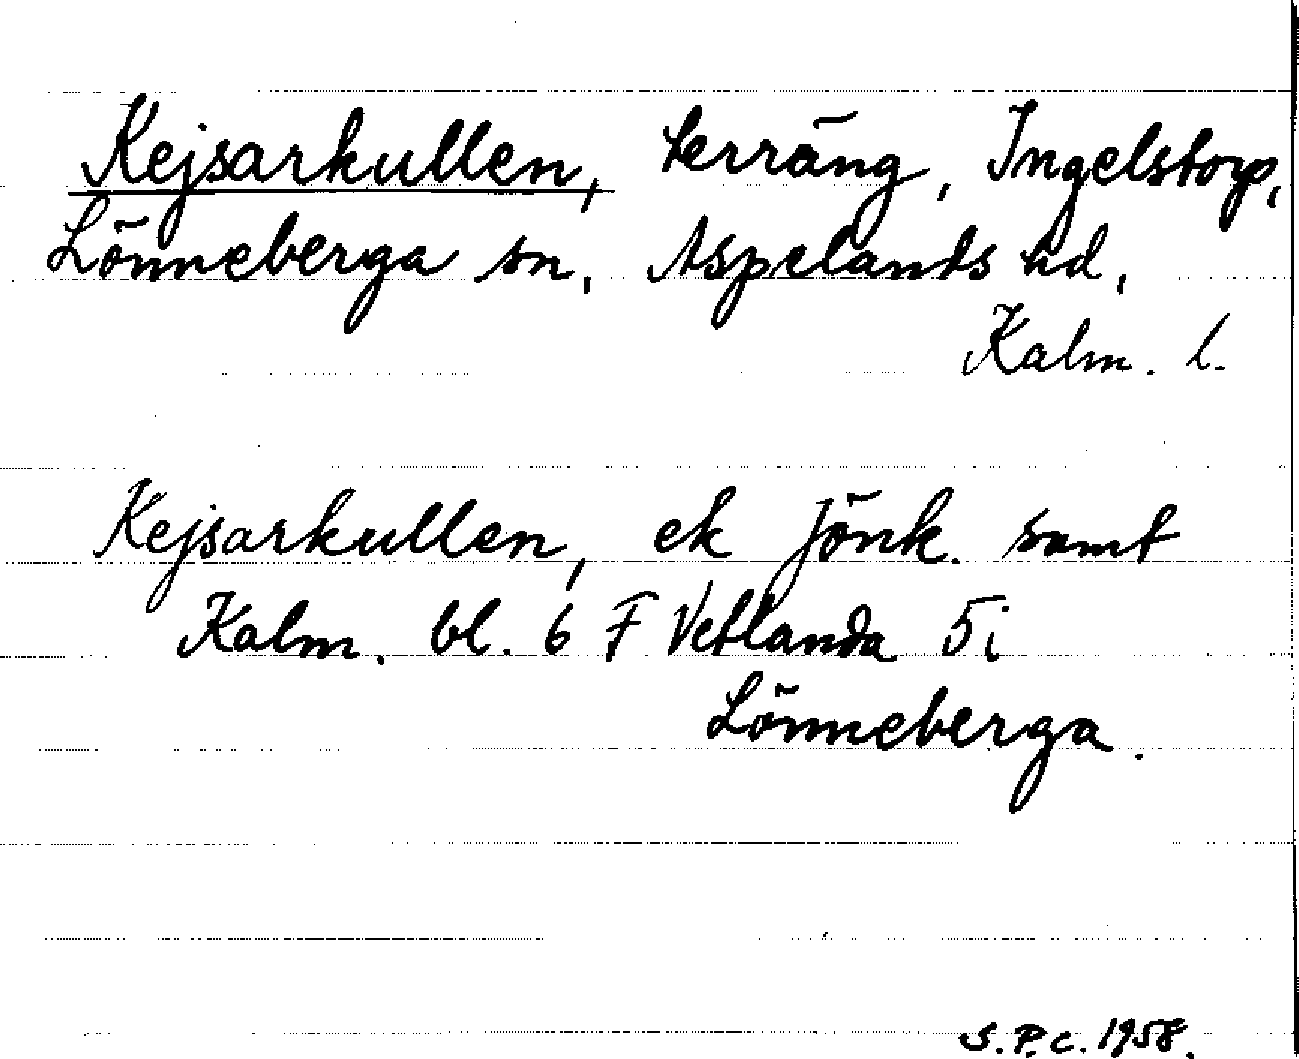 Kejsarkullen, terräng, Ingelstorp,
Lönneberga sn, Aspelands hd,
Kalm. l.
Kejsarkullen, ek Jönk. samt
Kalm. bl. 6 F Vetlanda 5i
Lönneberga.
S.P.c. 1958.